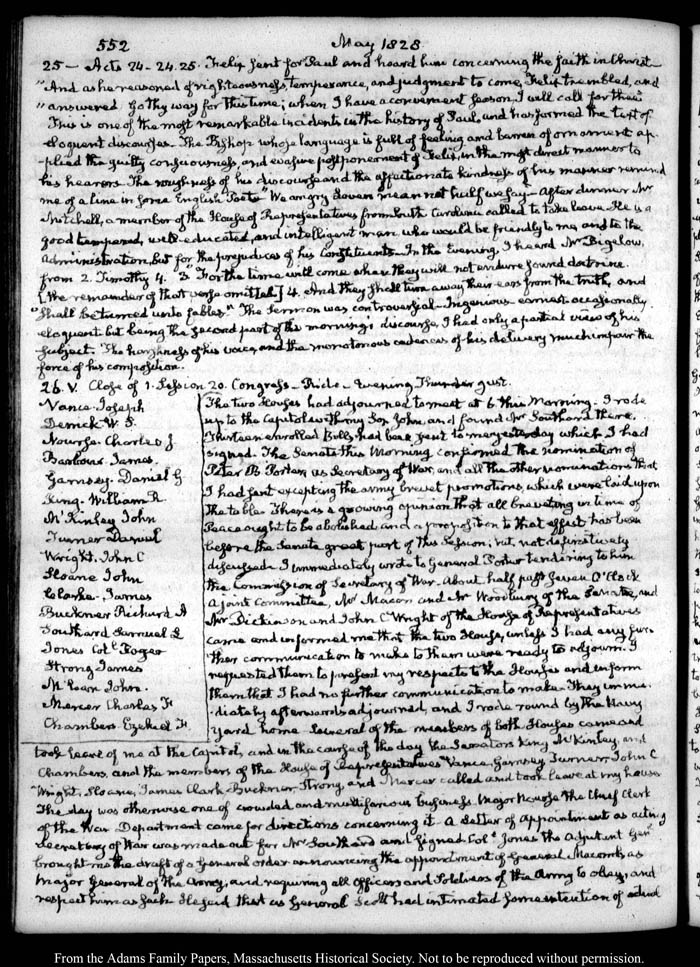 552 May 1828
25 - Acts 24-24.25. Felix sent for Paul and heard him concerning the faith in Christ -
"And as he reasoned of righteousness temperance, and judgment to come, Felix trembled, and
"answered Go thy way for this time; when I have a convenient season, I will call for thee"
This is one of the most remarkable incidents in the history of Paul, and has formed the text of
eloquent discourses. The Bishop whose language is full of feeling and barren of ornament ap-
-plied the guilty consciousness and evasive postponement of Felix, in the most direct manner to
his hearers. The roughness of his discourse and the affectionate kindness of his manner remind
me of a line in some English Poets "We angry lovers mean not half we say" - After dinner Mr
Mitchell, a member of the House of Representatives from South Carolina called to take leave. He is a
good tempered, well-educated, and intelligent man who would be friendly to me, and to the
Administration, but for the prejudices of his Constituents - In the Evening, I heard Mr Bigelow,
from 2. Timothy 4. 3 "For the time will come when they will not endure sound doctrine.
[the remainder of that verse omitted] 4. And they shall turn away their ears from the truth, and
"shall be turned unto fables." The Sermon was controversial - Ingenious earnest occasionally
eloquent but being the second part of the morning's discourse, I had only a partial view of his
subject. The harshness of his voice, and the monotonous cadences of his delivery much impair the
force of his composition.
26. V. Close of 1. Session 20. Congress - Ride - Evening Thunder gust.
Vance. Joseph
Derrick W. S.
Nourse. Charles J
Barbour. James
Garnsey. Daniel G
King. William R.
McKinley John
Turner Daniel
Wright. John C
Sloane John
Clarke. James
Buckner Richard A
Southard Samuel L
Jones Coll. Roger
Strong James
McLean John.
Mercer Charles F
Chambers Ezekiel F.
The two Houses had adjourned to meet at 6 this Morning. I rode
up to the Capitol with my Son John, and found Mr Southard there.
Thirteen enrolled Bills had been sent to me yesterday which I had
signed. The Senate this Morning confirmed the nomination of
Peter B. Porter, as Secretary of War, and all the other nominations that
I had sent excepting the army brevet promotions, which were laid upon
the table. There is a growing opinion that all breveting in time of
Peace ought to be abolished and a proposition to that effect has been
before the Senate great part of this Session; but not definitively
discussed. I immediately wrote to General Porter tendering to him
the Commission of Secretary of War. About half past Seven O'Clock
a joint Committee, Mr Macon and Mr Woodbury of the Senate, and
Mr Dickinson and John C Wright of the House of Representatives
came and informed me that the two Houses, unless I had any fur-
-ther communication to make to them were ready to adjourn. I
requested them to present my respects to the Houses and inform
them that I had no further communication to make. They imme-
-diately afterwards adjourned, and I rode round by the Navy
Yard home. Several of the members of both Houses came and
took leave of me at the Capitol, and in the course of the day the Senators King McKinley, and
Chambers, and the members of the House of Representatives Vance, Garnsey Turner John C
Wright, Sloane, James Clark Buckner Strong and Mercer called and took leave at my house
The day was otherwise one of crowded and multifarious business. Major Nourse the Chief Clerk
of the War Department came for directions concerning it. A Letter of appointment as acting
Secretary of War was made out for Mr Southard and signed. Coll. Jones the Adjutant Genl
brought me the draft of a General order announcing the appointment of General Macomb as
Major General of the Army, and requiring all Officers and Soldiers of the Army to obey, and
respect him as such. He said that as General Scott had intimated some intention of
From the Adams Family Papers, Massachusetts Historical Society. Not to be reproduced without permission.